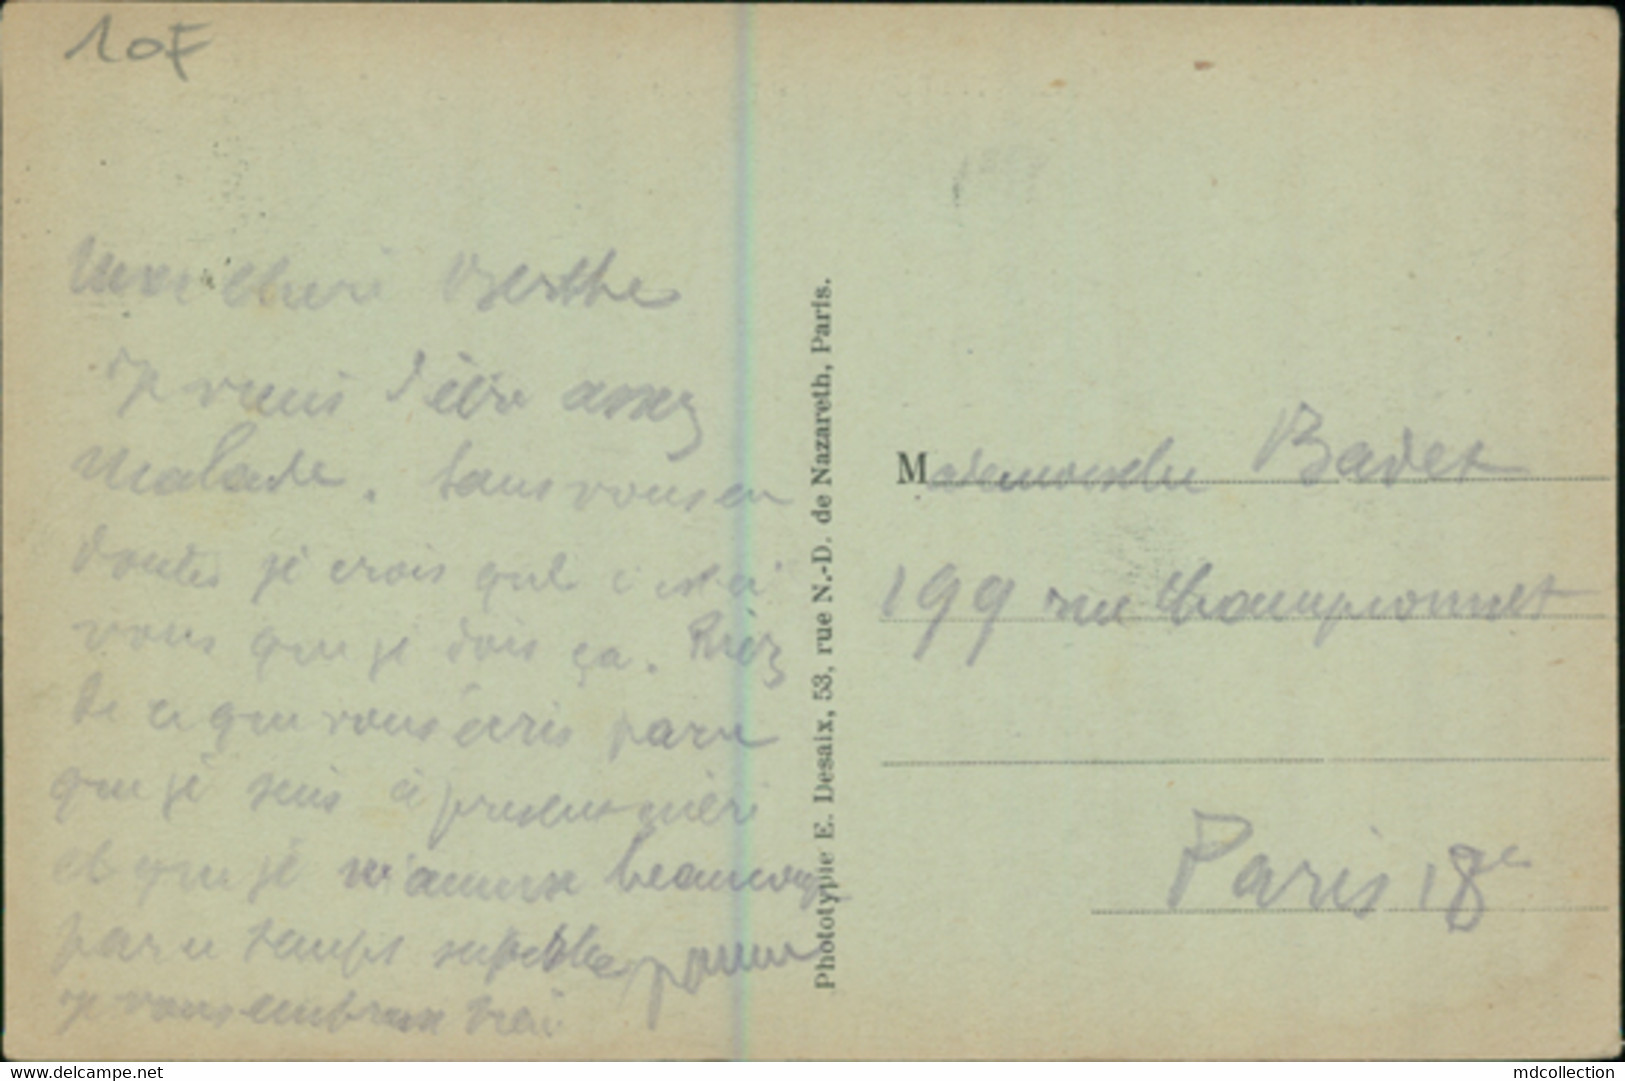 10F
Ma Cheri Berthe
je viens d'être assez
malade. Sans vous en
doutés je crois que c'est à
vous que je dois ça. Riez
de ce que vous écris parce
que je suis à présent guéri
et que je m'amuse beaucoup
par ce temps superbe
je vous embrasse
Photototypie E. Desaix, 53, rue N.-D. de Nazareth, Paris.
Mademoiselle Badet
199 rue Championnet
Paris 18e
delcampe.net
mdcollection